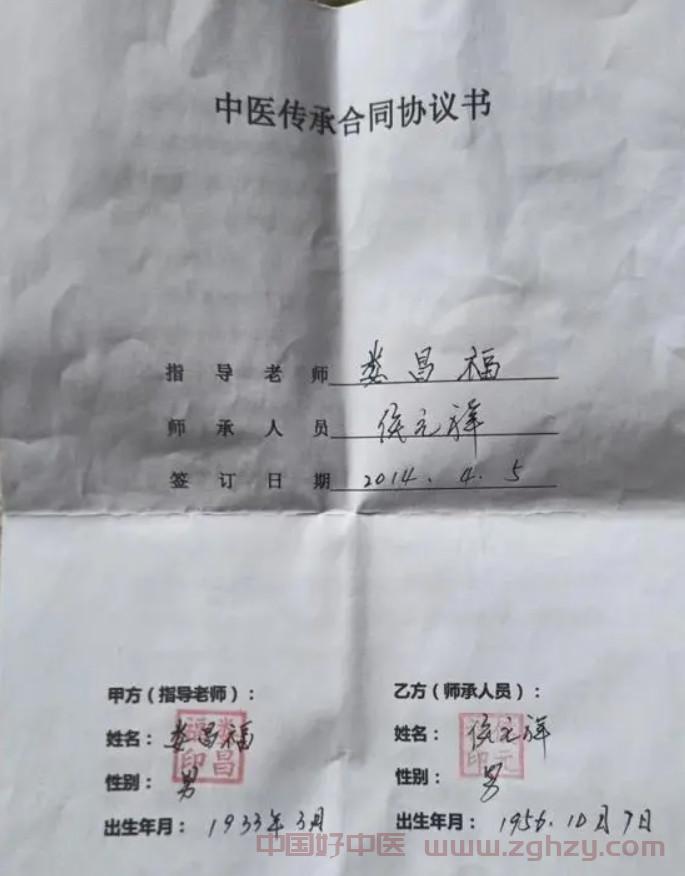 中医传承合同协议书
指导老师 娄昌福
师承人员 侯元祥
签订日期 2014.4.5
甲方(指导老师):
姓名:娄昌福
娄昌福印
性别:男
出生年月:1933年3月
乙方(师承人员):
姓名:侯元祥
性别:男
出生年月:1956.10月7日
中国好中医 www.zghzy.com